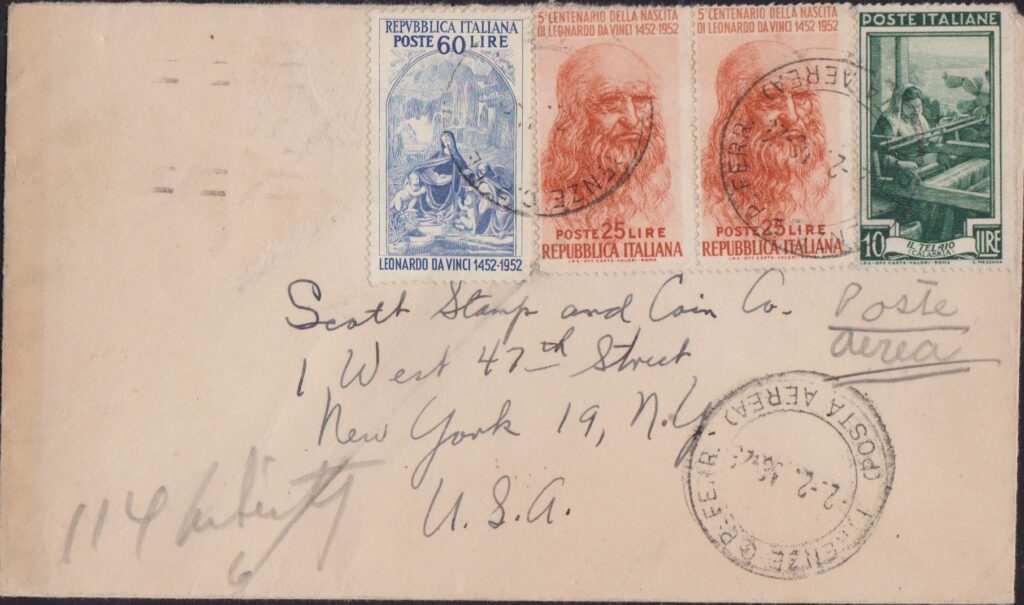 REPVBBLICA ITALIANA
POSTE 60 LIRE
LEONARDO DA VINCI 1452-1952
5° CENTENARIO DELLA NASCITA
DI LEONARDO DA VINCI 1452-1952
POSTE 25 LIRE
REPUBBLICA ITALIANA
I.P.S.-OFF. CARTE-VALORI-ROMA
5° CENTENARIO DELLA NASCITA
DI LEONARDO DA VINCI 1452-1952
POSTE 25 LIRE
REPUBBLICA ITALIANA
I.P.S.-OFF. CARTE-VALORI-ROMA
POSTE ITALIANE
10 LIRE
IL TELAIO
(CALABRIA)
I.P.S.-OFF. CARTE-VALORI-ROMA
MEZZANA
Scott Stamp and Coin Co.
1 West 47th Street
New York 19, N.Y.
U.S.A.
Poste
aerea
114
6
FIRENZE
(POSTA AEREA)